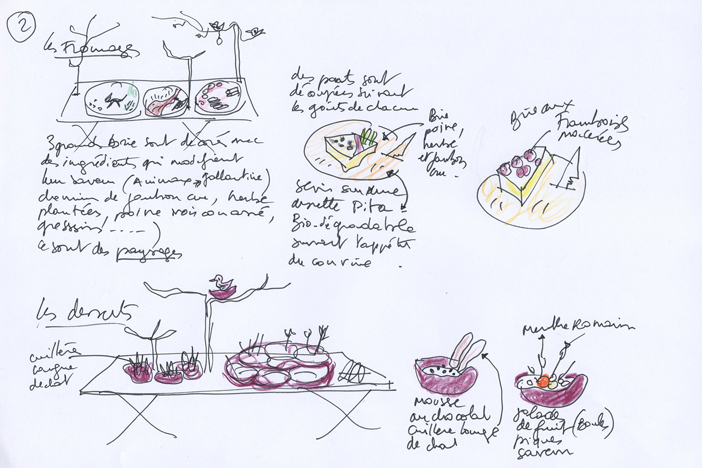 2
les Fromages
3 grands Brie sont décorés avec
des ingrédients qui modifient
leur saveur (Animaux gallantine)
de jambon cru, herbe
plantées, poivre noir concassé,
gressins ....)
ce sont des paysages
des parts sont
découpées suivant
les goûts de chacun
Brie
poivre,
herbe
et jambon
cru.
servis sur une
assiette Pita
Bio-dégradable
suivant l'appétit
du convive.
Brie aux
Framboises
macérées
les desserts
cuillère
langue
de chat
mousse
au chocolat
cuillère langue
de chat
Menthe Romarin
salade
de fruit (Boules)
piques
saveur